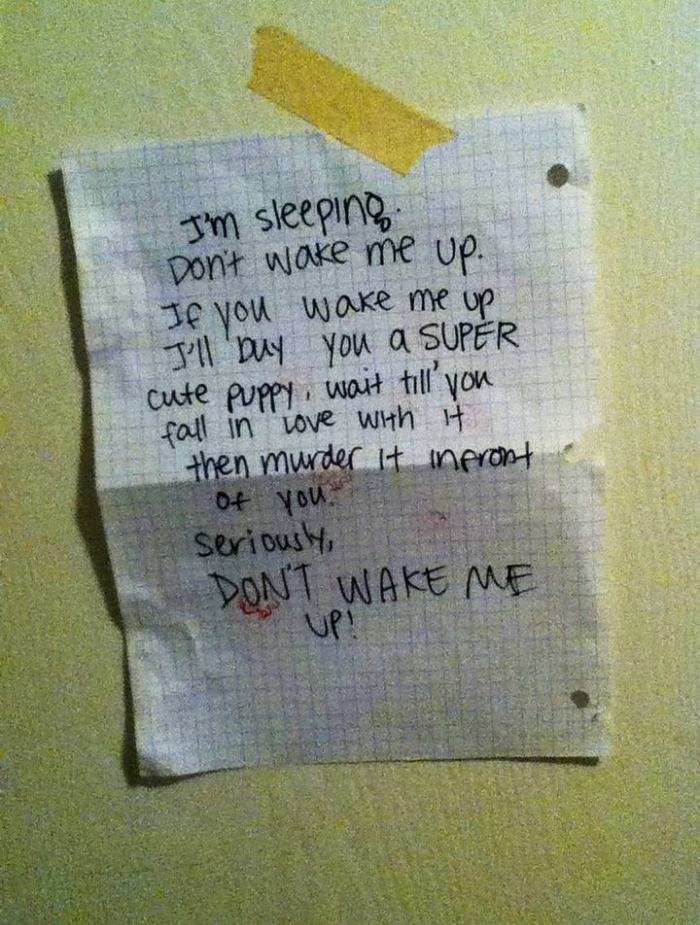 I'm sleeping.
Don't wake me up.
If you wake me up
I'll buy you a SUPER
cute puppy, wait till' you
fall in love with it
then murder it infront
of you.
seriously,
DON'T WAKE ME
UP!